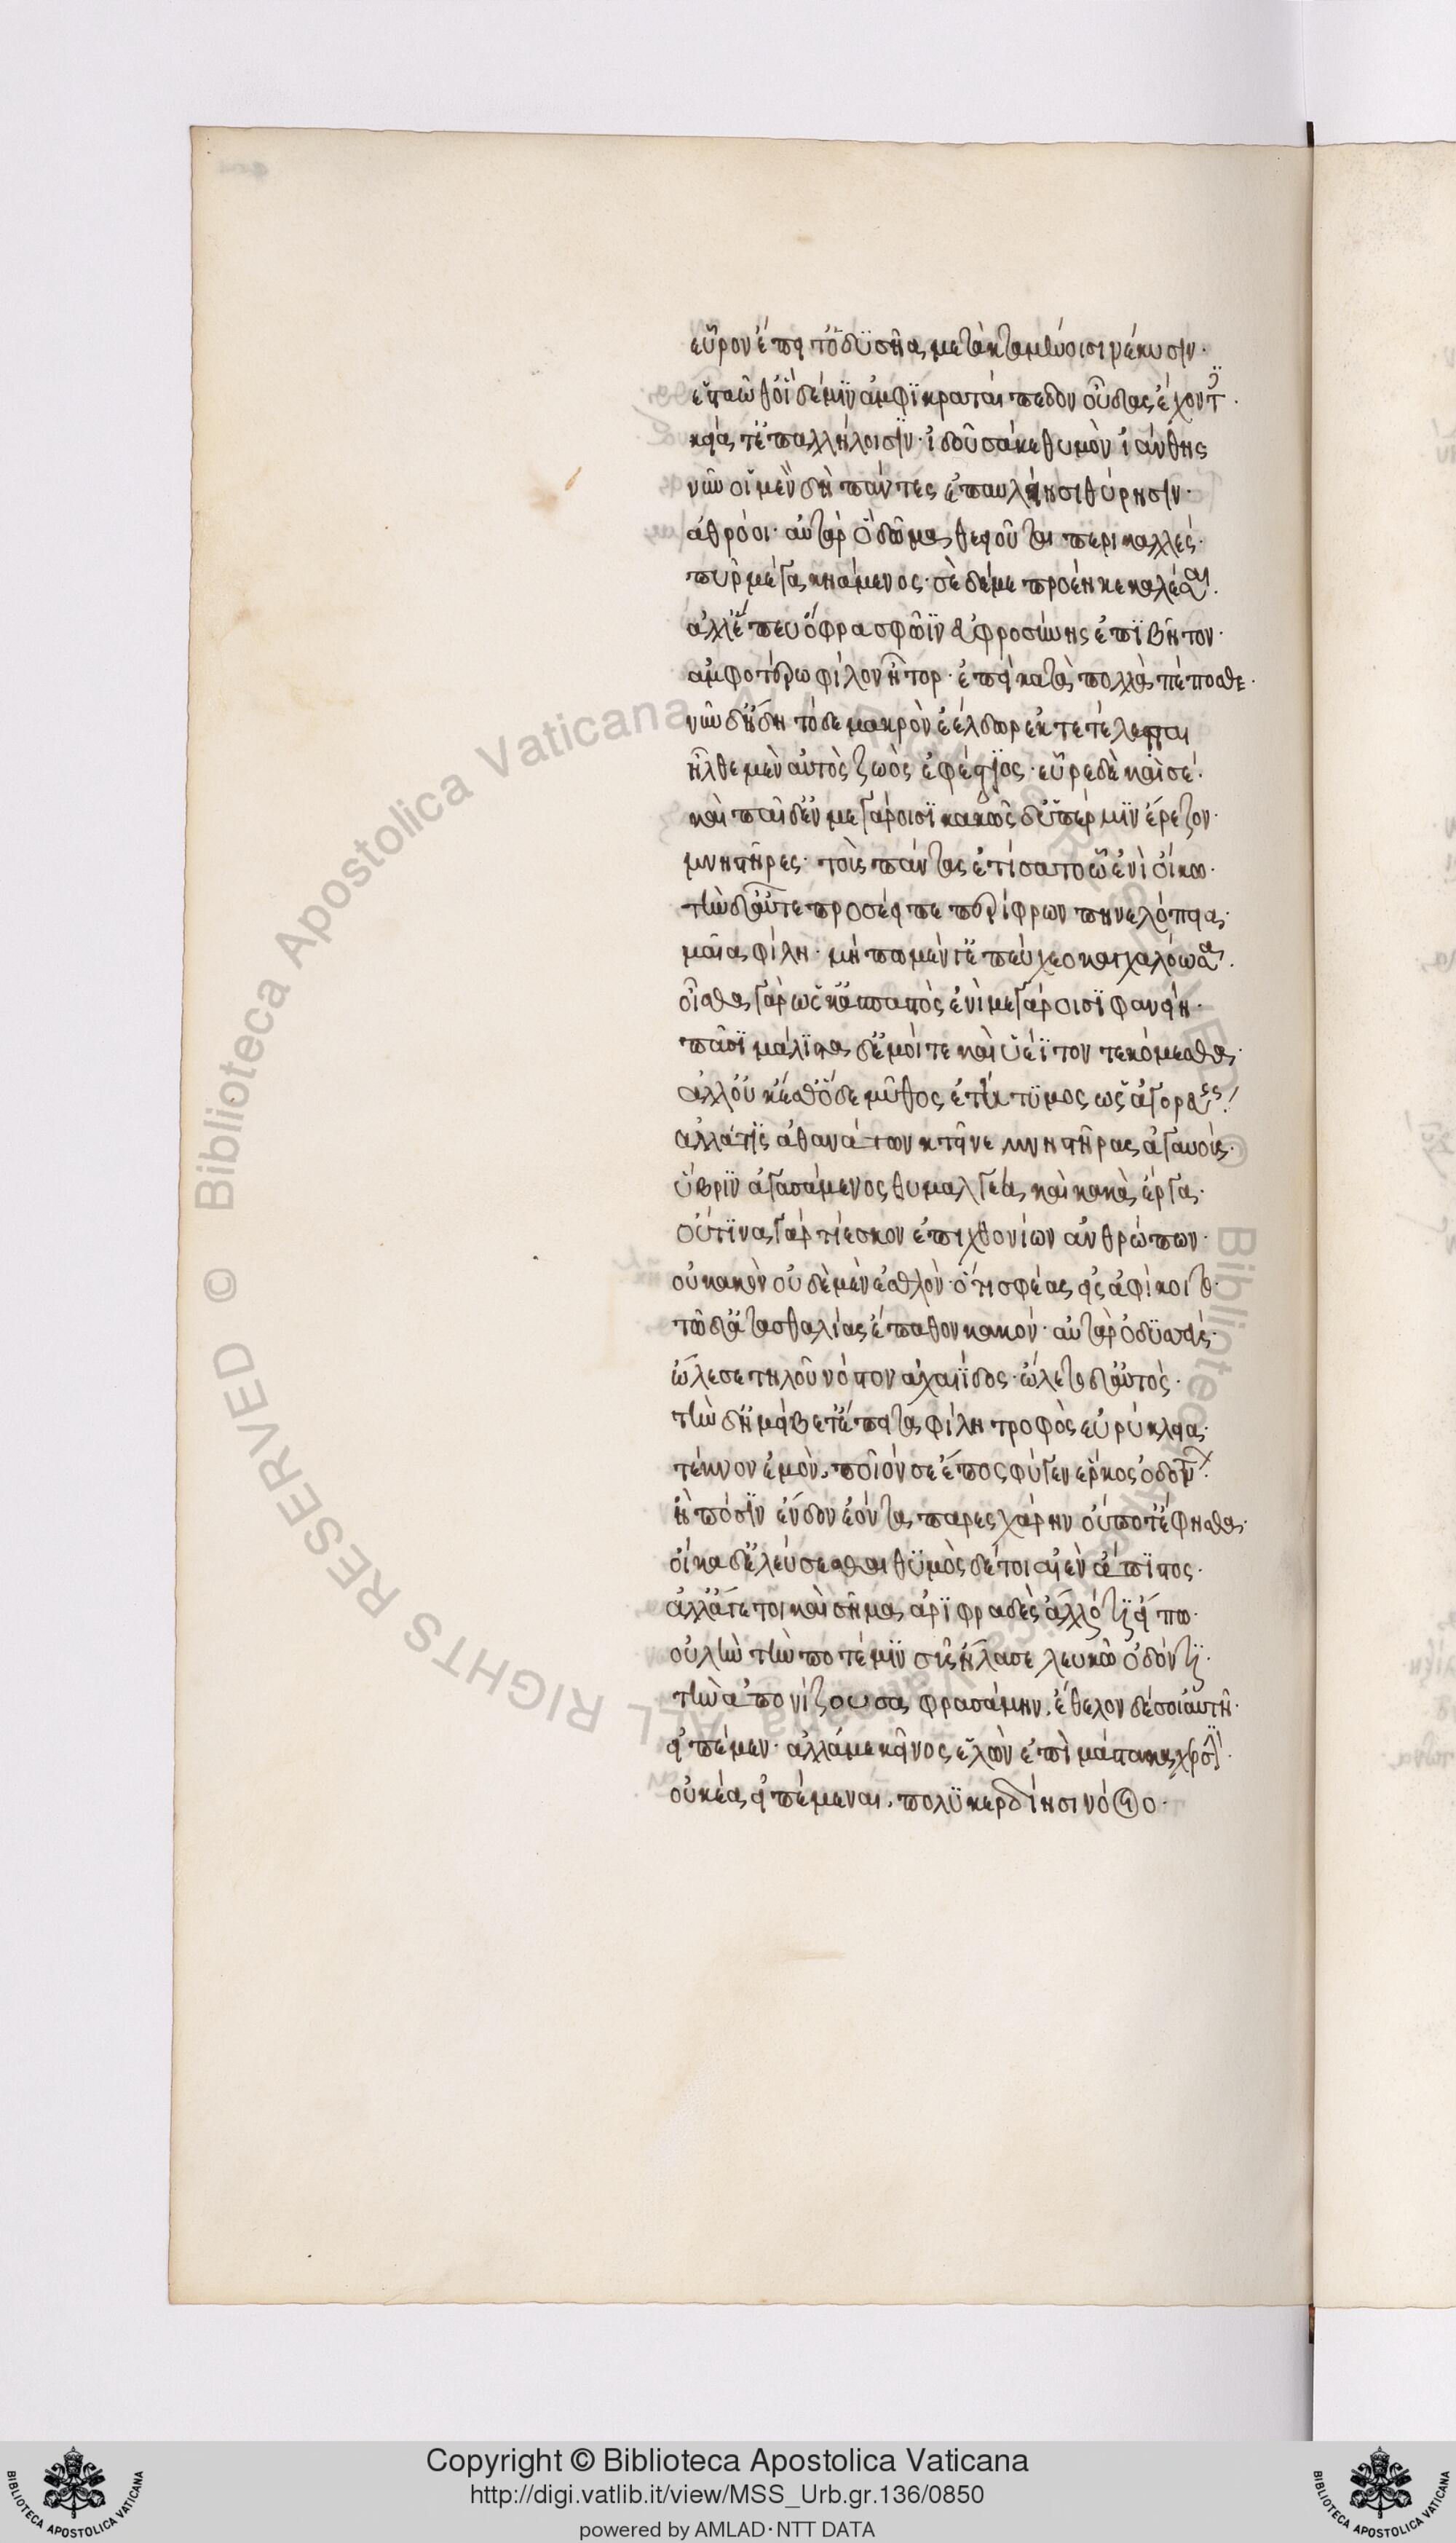 εὗρον ἔπειτ' ὀδυσῆα μετὰ κταμένοισι νέκυσιν·
ἑσταῶθ'· οἱ δέ μιν ἀμφὶ κραταίπεδον οὖδας ἔχοντες·
κείατ' ἐπ' ἀλλήλοισιν· ἰδοῦσά κε θυμὸν ἰάνθης
νῦν οἱ μὲν δὴ πάντες ἐπ' αὐλείησι θύρησιν·
ἀθρόοι· αὐτὰρ ὃ δῶμα θεειοῦται περικαλλές·
πῦρ μέγα κηάμενος· σὲ δέ με προέηκε καλέσαι·
ἀλλ' ἕπευ ὄφρα σφῶϊν ἐϋφροσύνης ἐπιβῆτον·
ἀμφοτέρω φίλον ἦτορ· ἐπεὶ κακὰ πολλὰ πέποσθε·
νῦν δ' ἤδη τόδε μακρὸν ἐέλδωρ ἐκτετέλεσται
ἦλθε μὲν αὐτὸς ζωὸς ἐφέστιος· εὗρε δὲ καὶ σέ·
καὶ παῖδ' ἐν μεγάροισι κακῶς δ' οἵπέρ μιν ἔρεζον·
μνηστῆρες· τοὺς πάντας ἐτίσατο ᾧ ἐνὶ οἴκω·
τὴν δ' αὖτε προσέειπε περίφρων πηνελόπεια·
μαῖα φίλη· μήπω μέγ' ἐπεύχεο καγχαλόωσα·
οἶσθα γὰρ ὡς κ' ἀσπαστὸς ἐνὶ μεγάροισι φανείη·
πᾶσι μάλιστα δ' ἐμοί τε καὶ υἱέϊ τὸν τεκόμεσθα·
ἀλλ' οὐκ ἔσθ' ὅδε μῦθος ἐτήτυμος ὡς ἀγορεύεις·
ἀλλά τις ἀθανάτων κτεῖνε μνηστῆρας ἀγαυούς·
ὕβριν ἀγασσάμενος θυμαλγέα καὶ κακὰ ἔργα·
οὔτινα γὰρ τίεσκον ἐπιχθονίων ἀνθρώπων·
οὐ κακὸν οὐδὲ μὲν ἐσθλὸν· ὅτις σφέας εἰσαφίκοιτο·
τῶ δι' ἀτασθαλίας ἔπαθον κακόν· αὐτὰρ ὀδυσσεὺς·
ὤλεσε τηλοῦ νόστον ἀχαιΐδος· ὤλετο δ' αὐτός·
τὴν δ' ἠμείβετ' ἔπειτα φίλη τροφὸς εὐρύκλεια·
τέκνον ἐμὸν, ποῖόν σε ἔπος φύγεν ἕρκος ὀδόντων·
ἣ πόσιν ἔνδον ἐόντα παρ' ἐσχάρη οὔποτ' ἔφησθα·
οἴκαδ' ἐλεύσεσθαι θυμὸς δέ τοι αἰὲν ἄπιστος·
ἀλλ' ἄγε τοι καὶ σῆμα ἀριφραδὲς ἄλλό τι εἴπω·
οὐλὴν τήν ποτέ μιν σῦς ἤλασε λευκῶ ὀδόντι·
τὴν ἀπονίζουσα φρασάμην, ἔθελον δέ σοι αὐτῆ·
εἰπέμεν· ἀλλά με κεῖνος ἑλὼν ἐπὶ μάστακα χερσὶ·
οὐκ ἔα εἰπέμεναι, πολυκερδίησι νόοιο·
Copyright © Biblioteca Apostolica Vaticana
http://digi.vatlib.it/view/MSS_Urb.gr.136/0850
powered by AMLAD·NTT DATA